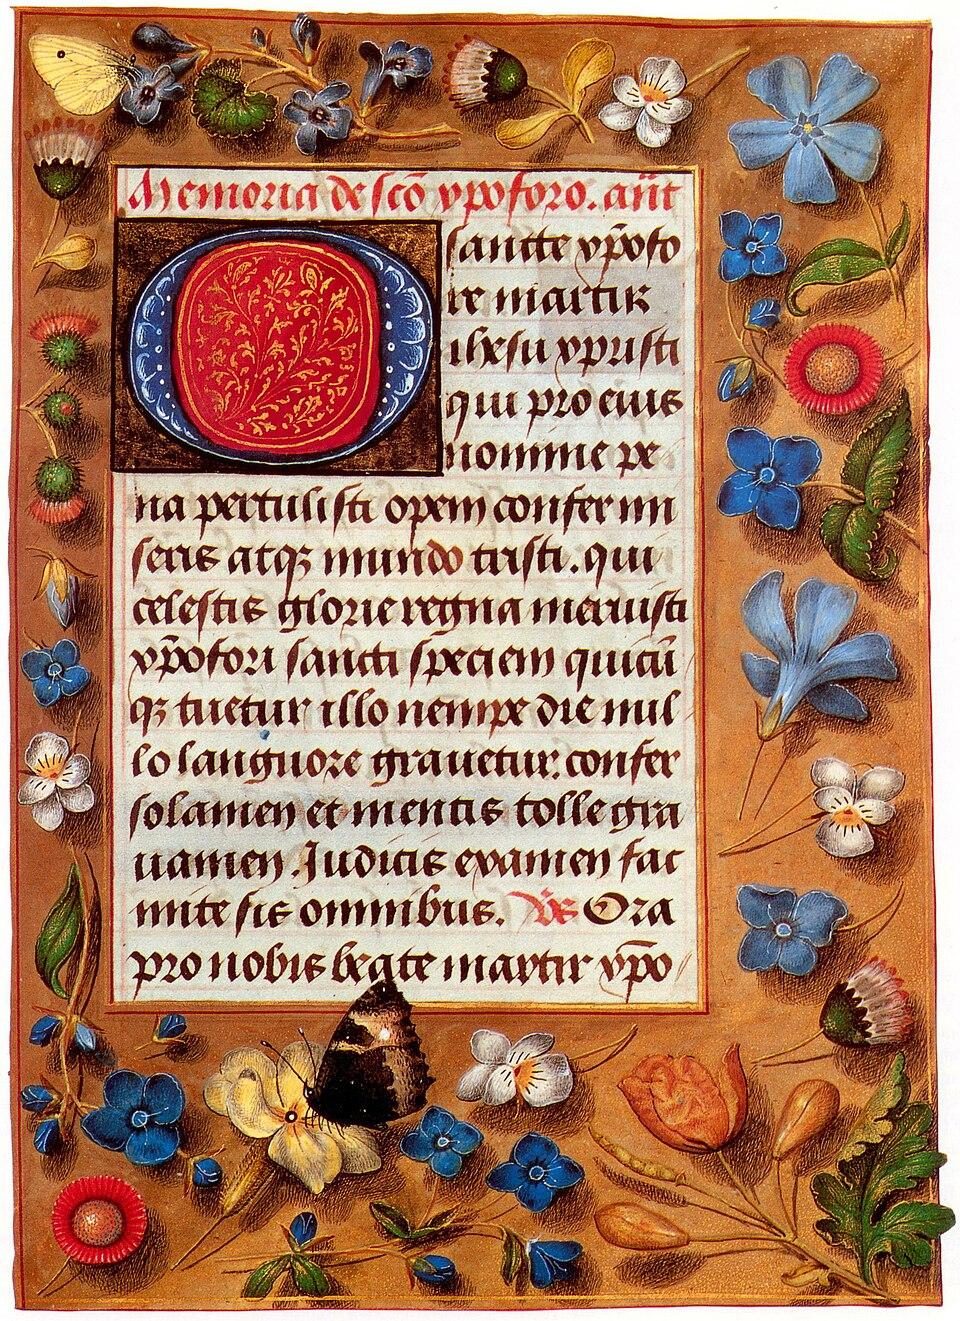 Memoria de sc̄o xpoforo. an̄t
O sancte xp̄ofo
re martir
ihesu xpristi
qui pro eius
nomine pe
na pertulisti opem confer mi
seris atqꝫ mundo tristi. qui
celestis glorie regna meruisti
xp̄ofori sancti speciem quicū
qꝫ tuetur illo nempe die nul
lo languore grauetur. confer
solamen et mentis tolle gra
uamen. Iudicis examen fac
mite sis omnibus. V̄s Ora
pro nobis beate martir xp̄o